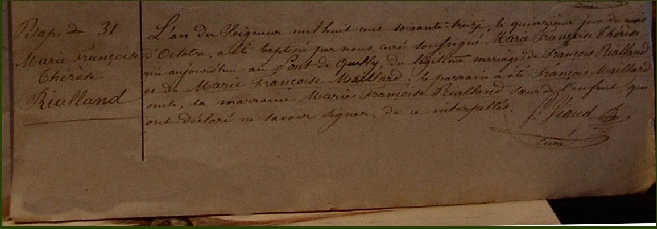 Bap. de 31
Marie Françoise
Thérèse
Rialland
L'an du Seigneur mil huit cent soixante treize, le quinzième jour du mois
d'Octobre, a été baptisée par nous, curé soussigné Marie Françoise Thérèse
née aujourd'hui au Pont de Quilly, du légitime mariage de François Rialland
et de Marie Françoise Maillard; le parrain a été François Maillard
oncle, la marraine Marie Françoise Rialland sœur de l'enfant, qui
ont déclaré ne savoir signer, de ce interpellés.
Viaud
curé